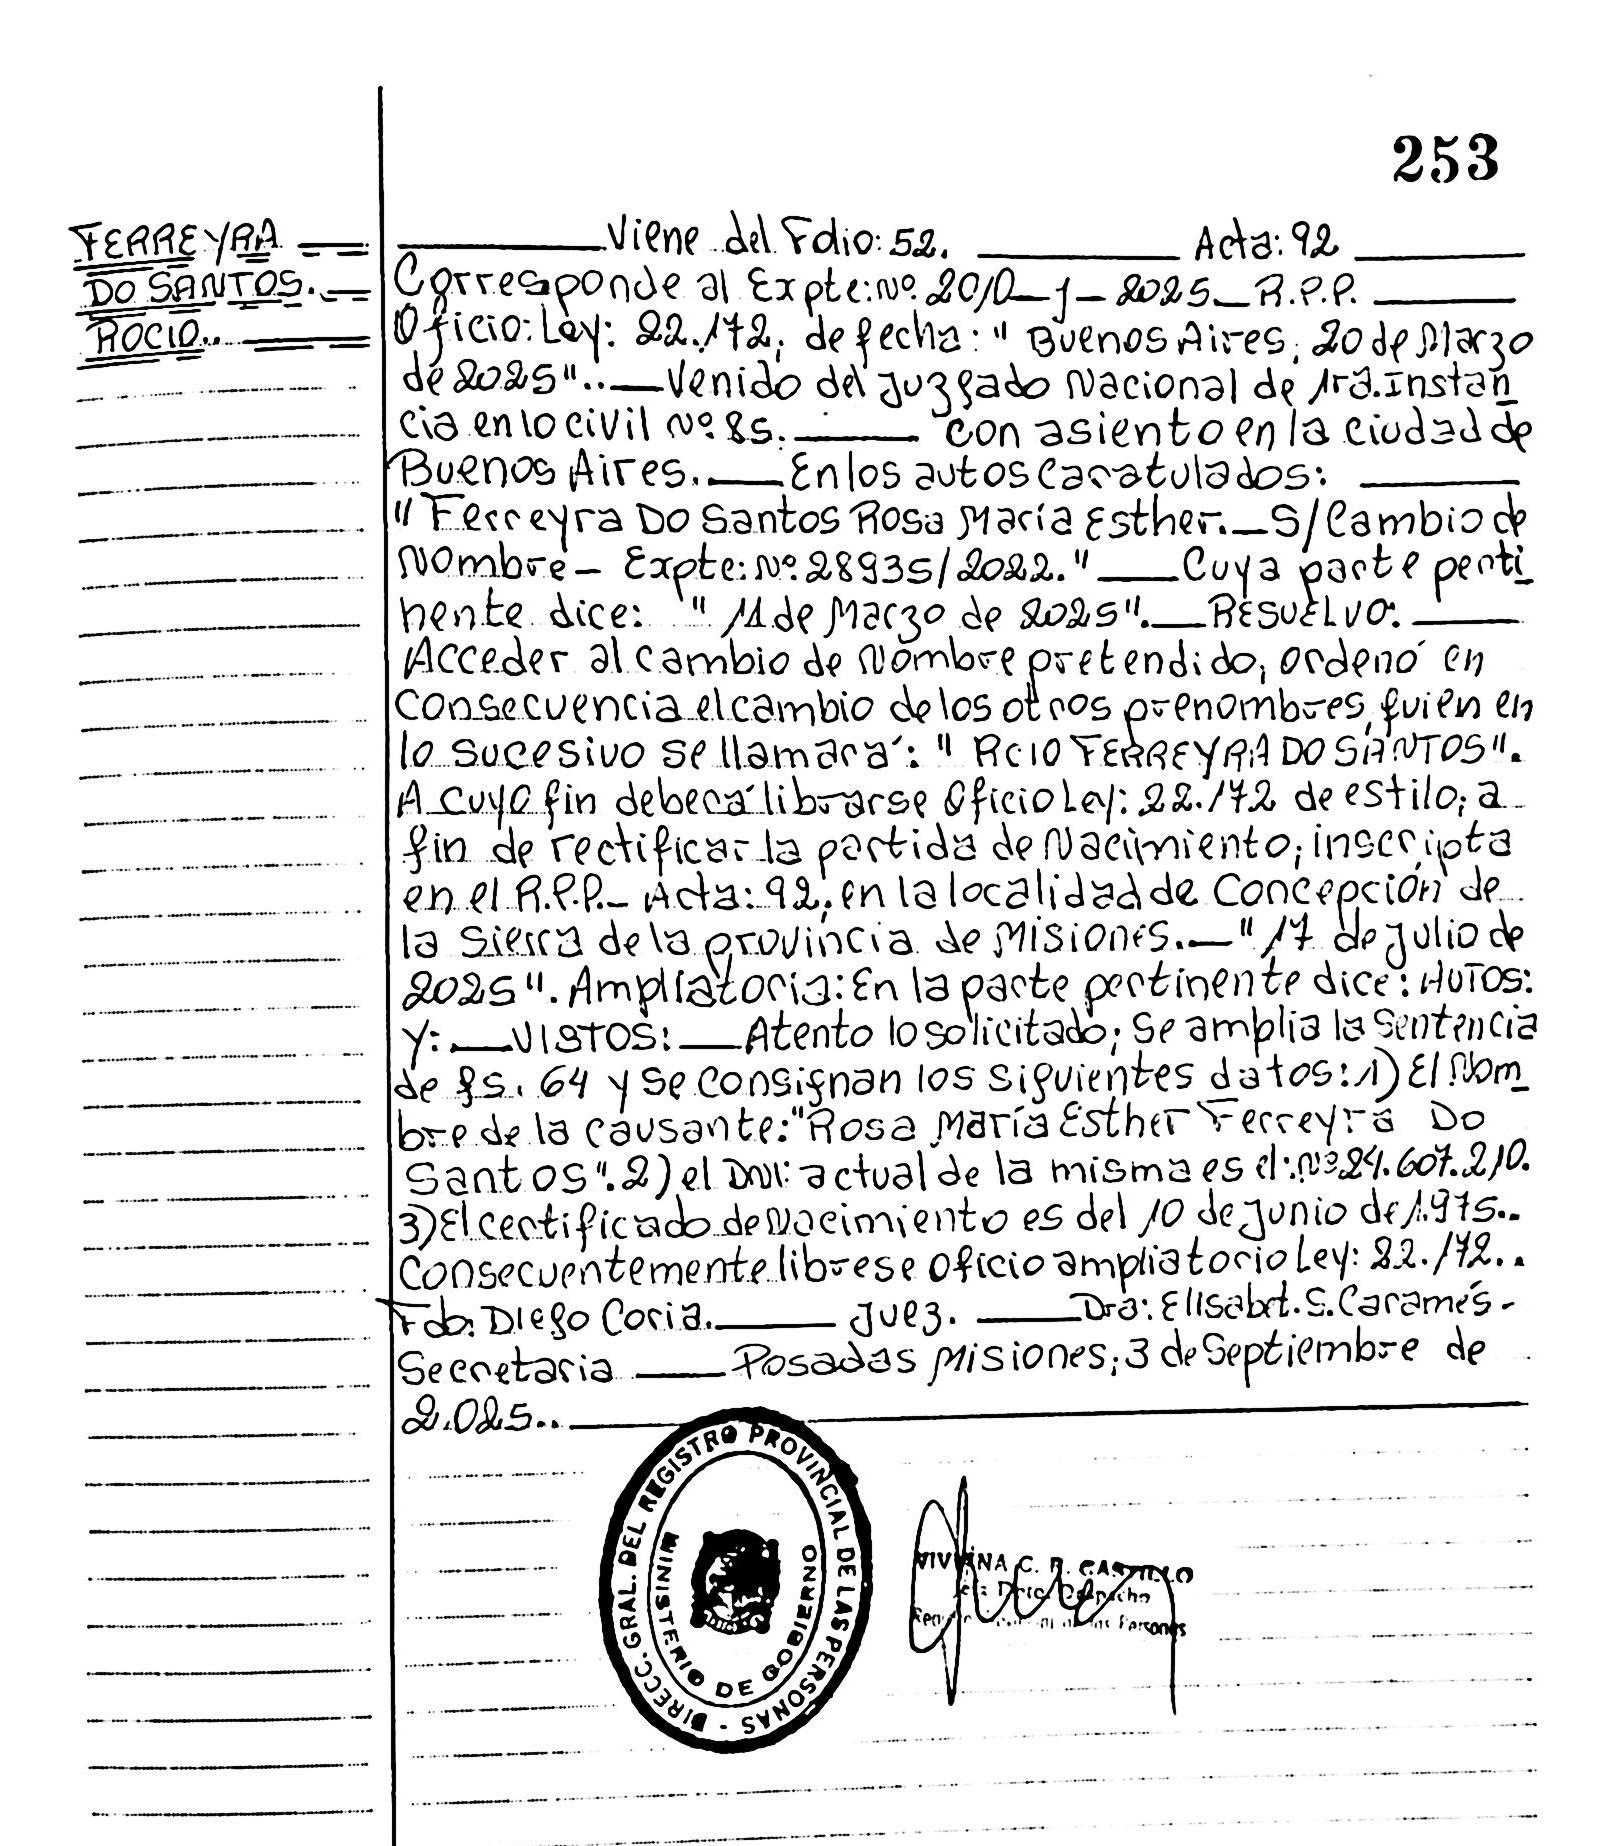 253
FERREYRA
DO SANTOS.
ROCIO..
Viene del Folio: 52. Acta: 92
Corresponde al Expte: Nº. 2010-J-2025_R.P.P.
Oficio: Ley: 22.172, de fecha: " Buenos Aires, 20 de Marzo
de 2025".. Venido del Juzgado Nacional de 1ra. Instan
cia en lo civil Nº. 85. con asiento en la ciudad de
Buenos Aires. En los autos caratulados:
" Ferreyra Do Santos Rosa María Esther. _ S/Cambio de
Nombre - Expte: Nº. 28935/2022." Cuya parte perti
nente dice: " 11 de Marzo de 2025". RESUELVO:
Acceder al cambio de Nombre pretendido, ordenó en
consecuencia el cambio de los otros prenombres, quien en
lo sucesivo se llamará: " RCIO FERREYRA DO SANTOS".
A cuyo fin deberá librarse Oficio Ley: 22.172 de estilo, a
fin de rectificar la partida de Nacimiento, inscripta
en el R.P.P._ Acta: 92, en la localidad de Concepción de
la Sierra de la provincia de Misiones. _ " 17 de Julio de
2025". Ampliatoria: En la parte pertinente dice: AUTOS:
y: VISTOS: Atento lo solicitado, Se amplia la Sentencia
de fs. 64 y se consignan los siguientes datos: 1) El Nom_
bre de la causante: "Rosa María Esther Ferreyra Do
Santos". 2) el DNI: actual de la misma es el: Nº 24.607.210.
3) El certificado de Nacimiento es del 10 de Junio de 1.975..
Consecuentemente librese oficio ampliatorio Ley: 22.172..
Fdo: Diego Coria. Juez. Dra: Elisabet. S. Caramés-
Secretaria Posadas Misiones, 3 de Septiembre de
2.025..
DIRECC. GRAL. DEL REGISTRO PROVINCIAL DE LAS PERSONAS -
MINISTERIO DE GOBIERNO
VIVIANA C. R. CASTILLO
Despacho
de las Personas